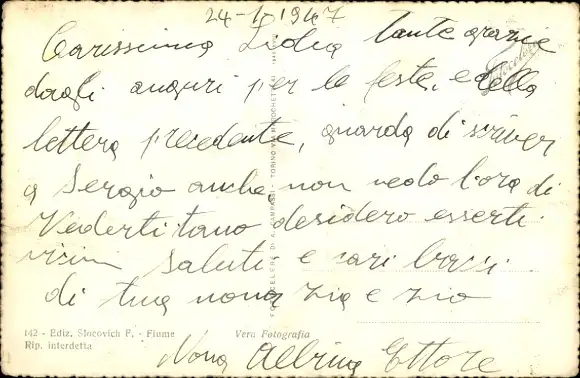 24-1-1947
Carissima Lidia tante grazie
dagli auguri per le feste, e della
lettera precedente, guarda di scriver
a Sergio anche non vedo l'ora di
Vederti tano desidero esserti
vicin saluti e cari bacci
di tua nona zia e zio
Nona Albina Ettore
142 - Ediz. Slocovich F. - Fiume
Rip. interdetta
Vera Fotografia